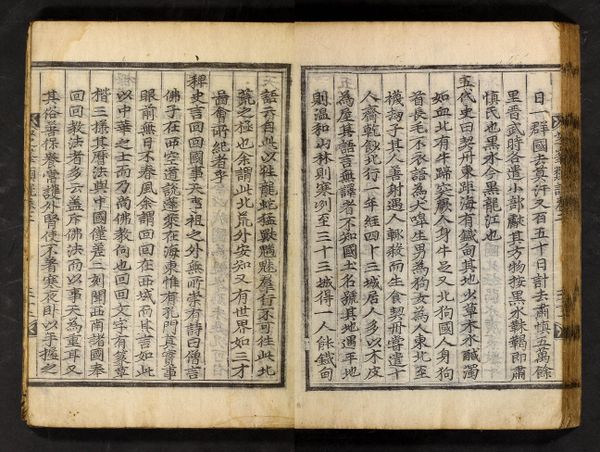 日一群國去莫汗又百五十日計去肅慎五萬餘
里晋武時各遣小部獻其方物按黑水靺鞨即肅
慎氏也黑水今黑龍江也
五代史曰契丹東距海有鐵甸其地少草木水醎濁
如血北有牛蹄突厥人身牛足又北狗國人身狗
首長毛不衣語爲犬嘷生男爲狗女爲人東北至
襪劫子其人善射遇人輒殺而生食契丹嘗遣十
人齎乾飯北行一年經四十三城居人多以木皮
爲屋其語言無譯者不知國土名號其地遇平地
則溫和山林則寒冽至三十三城得一人能鐵甸
語云自此以往龍蛇猛獸魑魅羣行不可往此北
荒之極也余謂此北荒外安知又有世界如三才
圖會所紀者乎
稗史言回回國事天祖之外無所崇有詩曰僧言
佛子在西空道說蓬萊在海東惟有孔門真實事
眼前無日不春風余謂回回在西域而其言如此
以中華之士而乃尚佛教何也回回文字有篆草
楷三樣其曆法與中國僅差二刻聞西南諸國奉
回回教法者多云盖斥佛法而以事天爲重耳又
其俗善保養嘗護外腎使不着寒夜卧以手握之